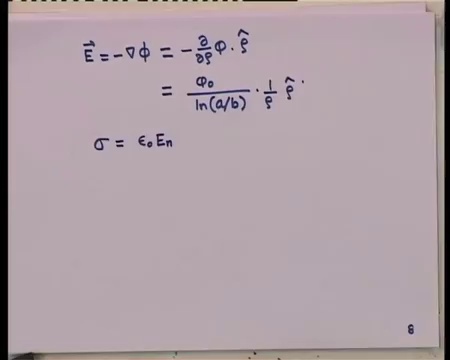 E⃗ = -∇Φ = - ∂/∂ρ Φ . ρ̂
= Φ₀/ln(a/b) . 1/ρ ρ̂ .
σ = ε₀ En
8